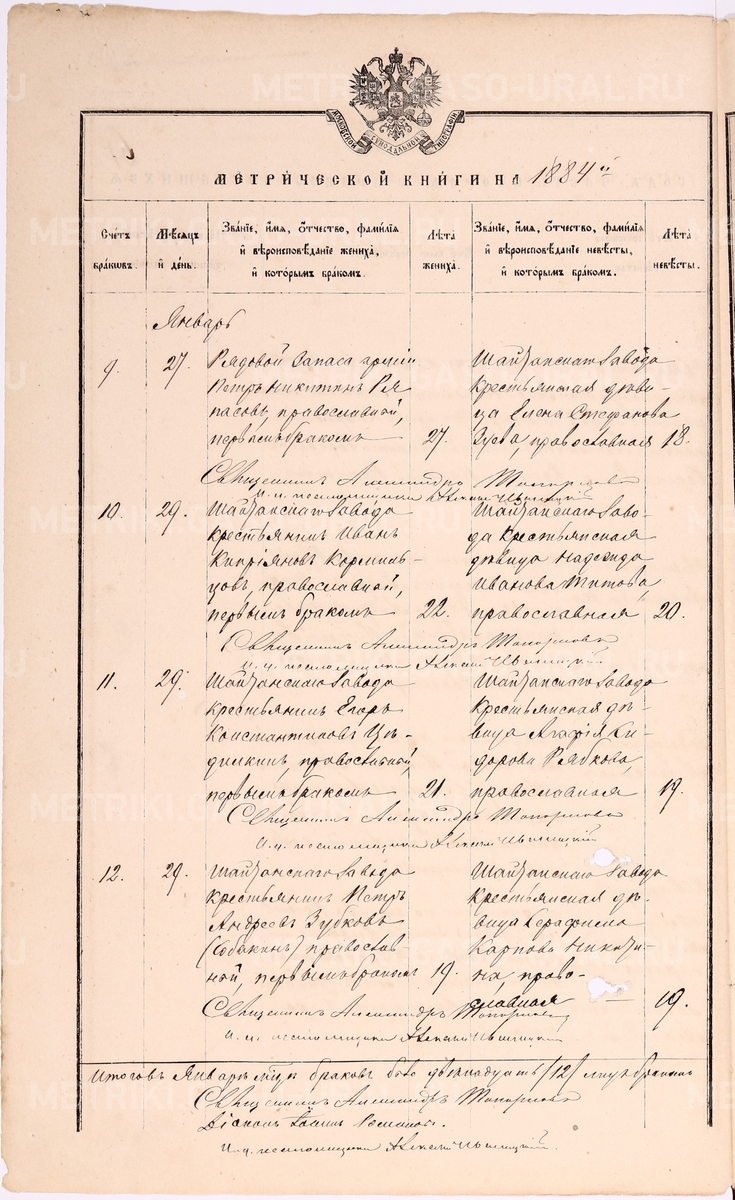 МОСКОВСКОЙ СИНОДАЛЬНОЙ ТИПОГРАФІИ
МЕТРИЧЕСКОЙ КНИГИ НА 1884 й
Счетъ браковъ.
Мѣсяцъ и день.
Званіе, имя, отчество, фамилія и вѣроисповѣданіе жениха, и которымъ бракомъ.
Лѣта жениха.
Званіе, имя, отчество, фамилія и вѣроисповѣданіе невѣсты, и которымъ бракомъ.
Лѣта невѣсты.
Январь
9. 27. Рядовой Запаса арміи
Петръ Никитинъ Ря
пасовъ, православной,
первымъ бракомъ 27.
Шайтанскаго Завода
крестьянская дѣви
ца Елена Стефанова
Зуева, православная 18.
Священникъ Александръ Топорковъ
И. д. псаломщика Алексѣй
10. 29. Шайтанскаго Завода
крестьянинъ Иванъ
Кипріяновъ Кормиль-
цовъ, православной,
первымъ бракомъ 22.
Шайтанскаго Заво-
да крестьянская
дѣвица Надежда
Иванова Титова,
православная 20.
Священникъ Александръ Топорковъ
И. д. псаломщика Алексѣй
11. 29. Шайтанскаго Завода
крестьянинъ Егоръ
Константиновъ
православной,
первымъ бракомъ 21.
Шайтанскаго Завода
крестьянская дѣ-
вица Агафія Си-
дорова Рябкова,
православная 19.
Священникъ Александръ Топорковъ
И. д. псаломщика Алексѣй
12. 29. Шайтанскаго Завода
крестьянинъ Петръ
Андреевъ Зубковъ
(Собакинъ) православ-
ной, первымъ бракомъ 19.
Шайтанскаго Завода
крестьянская дѣ-
вица Серафима
Карпова Никити-
на, право-
славная 19.
Священникъ Александръ Топорковъ
И. д. псаломщика Алексѣй
Итого въ Январѣ м-цѣ браковъ было двенадцать (12)
Священникъ Александръ Топорковъ
Діаконъ Іоаннъ Романовъ.
И. д. псаломщика Алексѣй